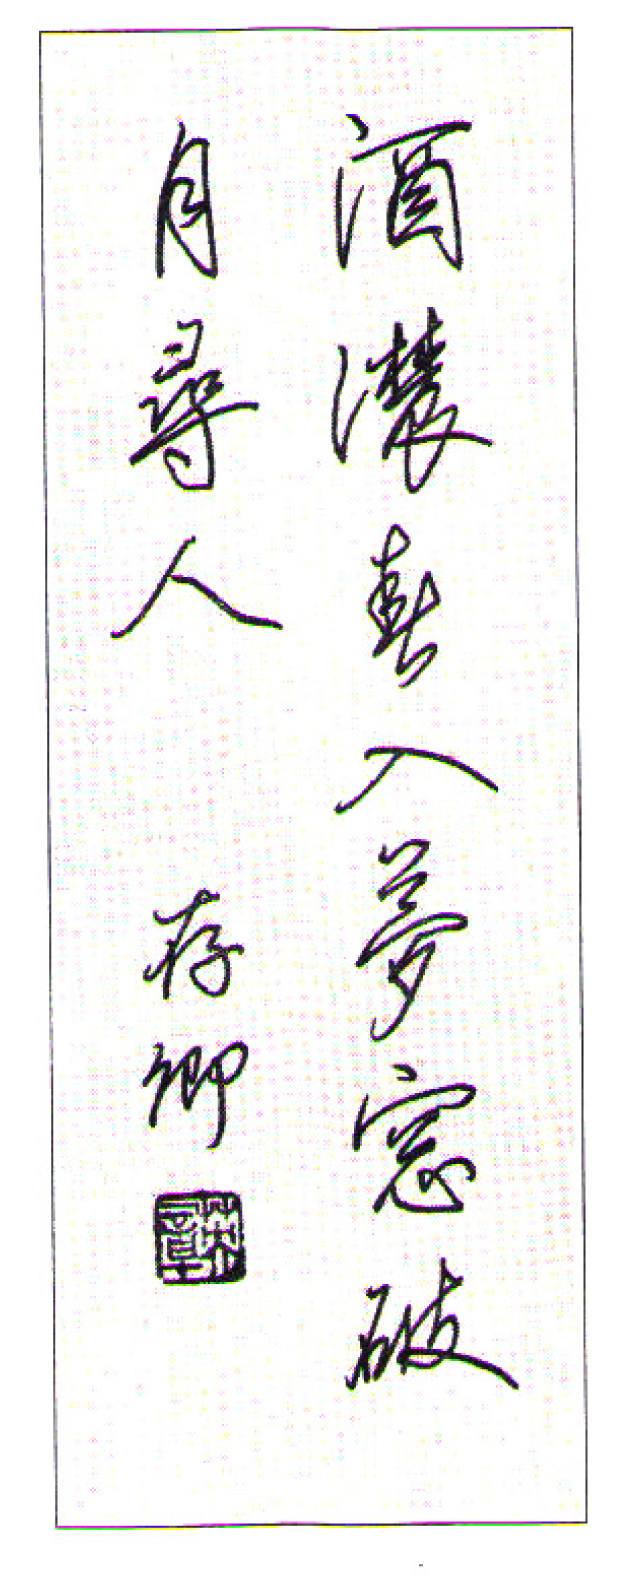 酒濃春入夢窓破
月尋人
存卿